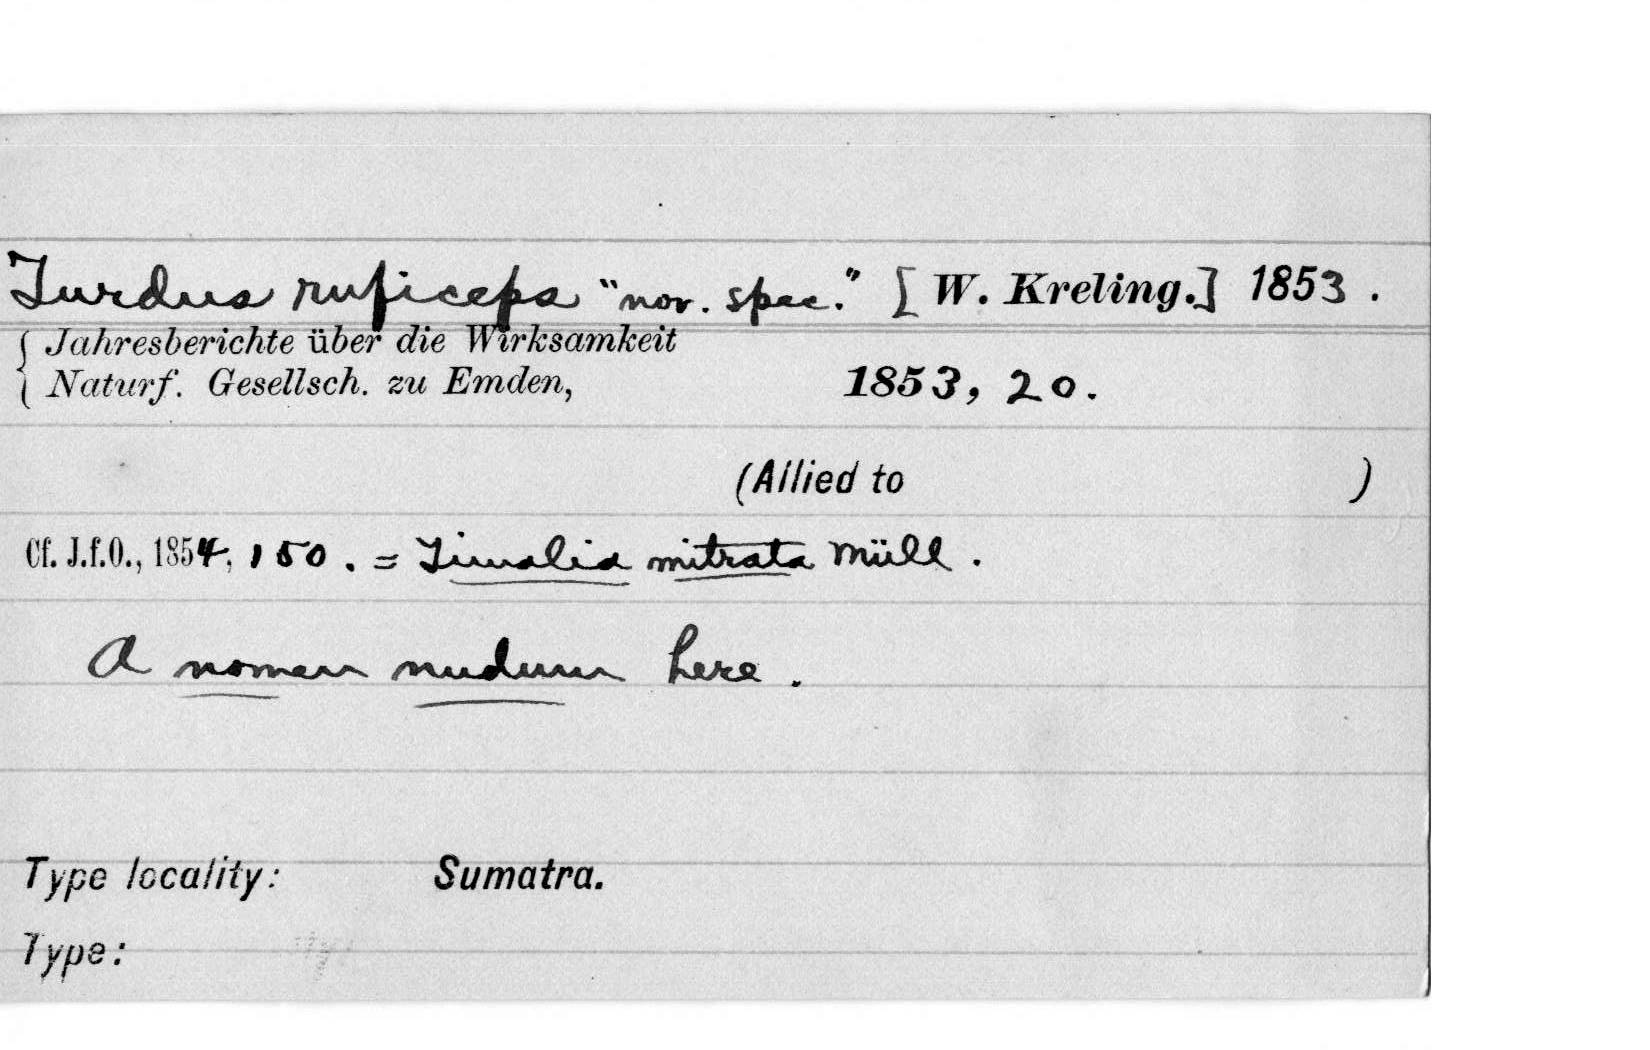 Turdus ruficeps "nov. spec." [W. Kreling.] 1853.
{ Jahresberichte über die Wirksamkeit
Naturf. Gesellsch. zu Emden, 1853, 20.
(Allied to )
Cf. J.f.O., 1854, 150. = Timalia mitrata Müll.
A nomen nudum here.
Type locality: Sumatra.
Type: